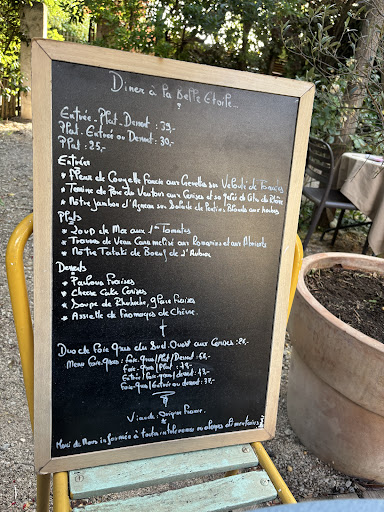 Diner à la Belle Etoile...
?
Entrée - Plat - Dessert : 39,-
Plat - Entrée ou Dessert : 30,-
Plat : 25,-
Entrées
* Fleur de Courgette Farcie aux Crevettes sur Velouté de Tomates
* Terrine de Porc du Ventoux aux Cerises et sa gelée de Côte du Rhône
* Notre jambon d'Agneau sur Salade de Lentilles Blondes aux herbes
Plats
* Loup de Mer aux 3 Tomates
* Travers de Veau Caramélisé aux Romarins et aux Abricots
* Notre Tataki de Boeuf de l'Aubrac
Desserts
* Pavlova Fraises
* Cheese Cake Cerises
* Soupe de Rhubarbe, glace Fraises
* Assiette de Fromages de Chèvre.
Duo de Foie gras du Sud Ouest aux Cerises : 24.-
Menu Foie gras : Foie-gras/Plat/Dessert :
Foie-gras/Plat :
Entrée/Foie-gras/dessert :
Foie-gras/Entrée ou dessert :
Viande : Origine France.
Merci de nous informer de toute intolérance ou allergies alimentaires!